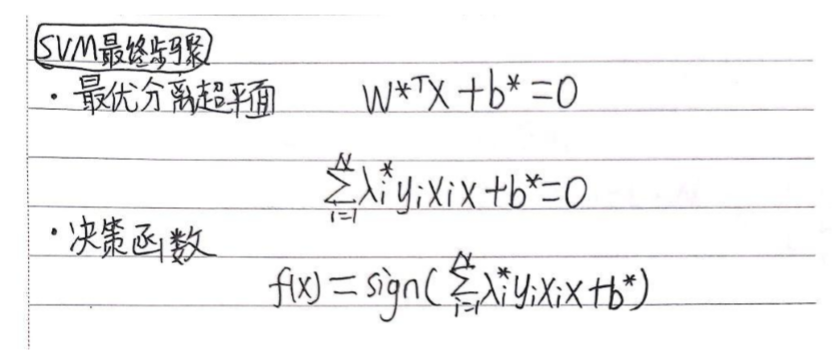 SVM最终步骤
· 最优分离超平面 W*ᵀX + b* = 0
∑ᵢ₌₁ᴺ λᵢ* yᵢ xᵢ x + b* = 0
· 决策函数
f(x) = sign( ∑ᵢ₌₁ᴺ λᵢ* yᵢ xᵢ x + b* )